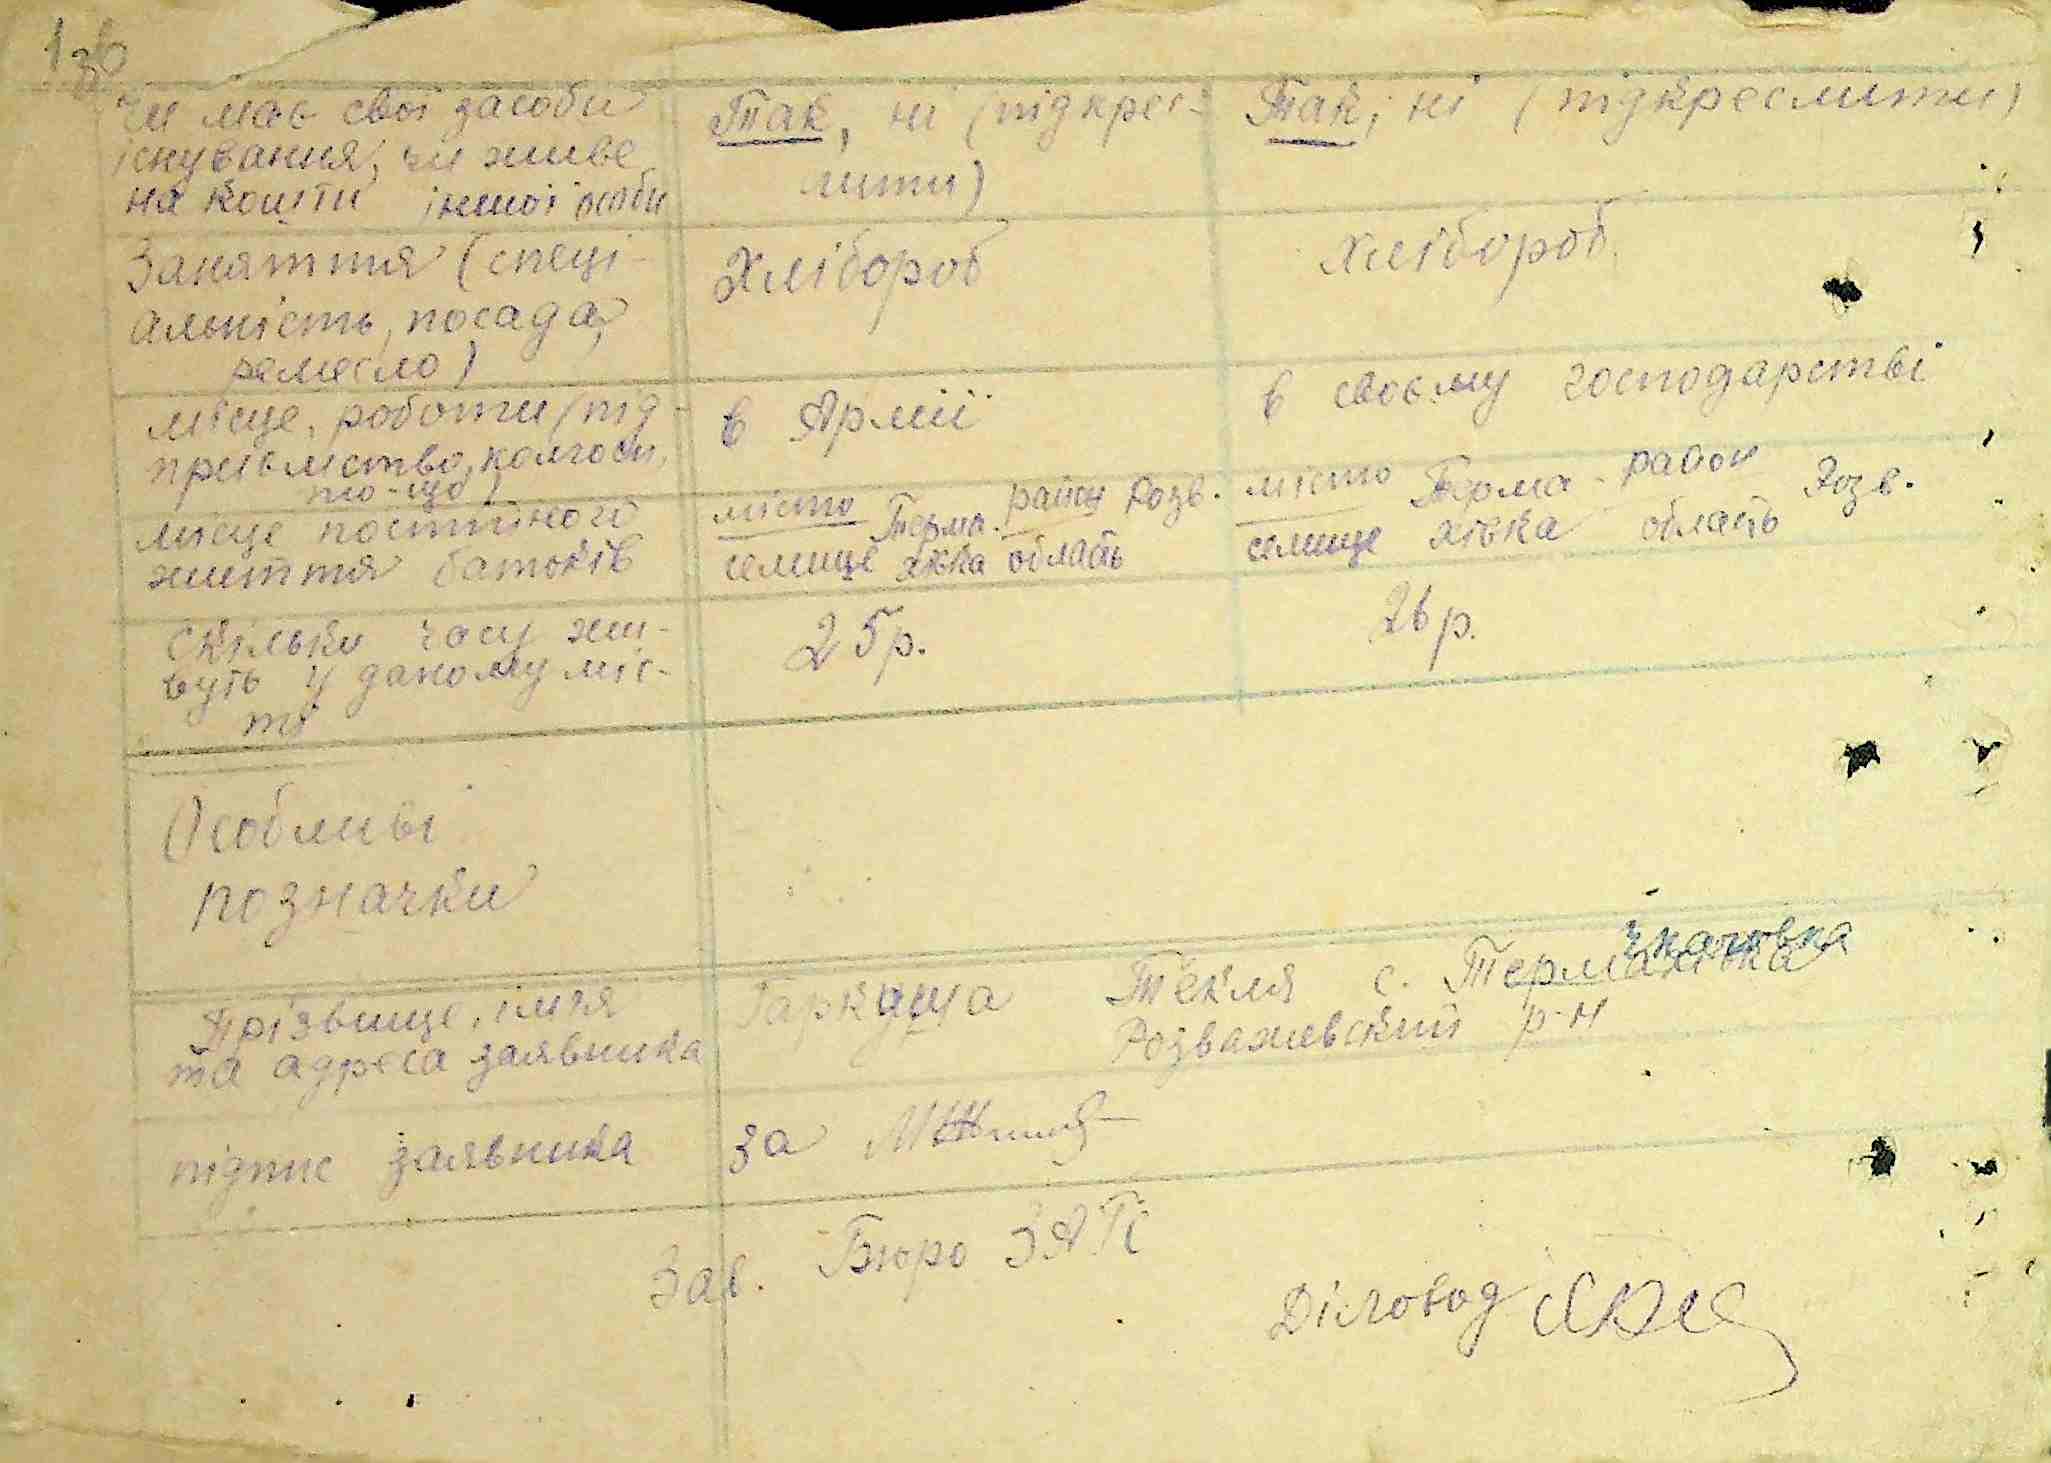 1зв
Чи має свої засоби
існування, чи живе
на кошти іншої особи
Так, ні (підкрес-
лити)
Так, ні (підкреслити)
Заняття (спеці-
альність, посада,
ремесло)
Хлібороб
хлібороб
місце, роботи (під-
приємство, колгосп,
то-що)
в Армії
в своєму господарстві
місце постійного
життя батьків
місто Терма- район Розв.
селище хівка область
місто Терма- район Розв.
селище хівка область
Скільки часу жи-
вуть у даному міс-
ті
25р.
26р.
Особливі
позначки
Прізвище, ім'я
та адреса заявника
Гаркуша Текля с. Термахівка
Розважевский р-н
підпис заявника
за
Зав. Бюро ЗАГС
Діловод